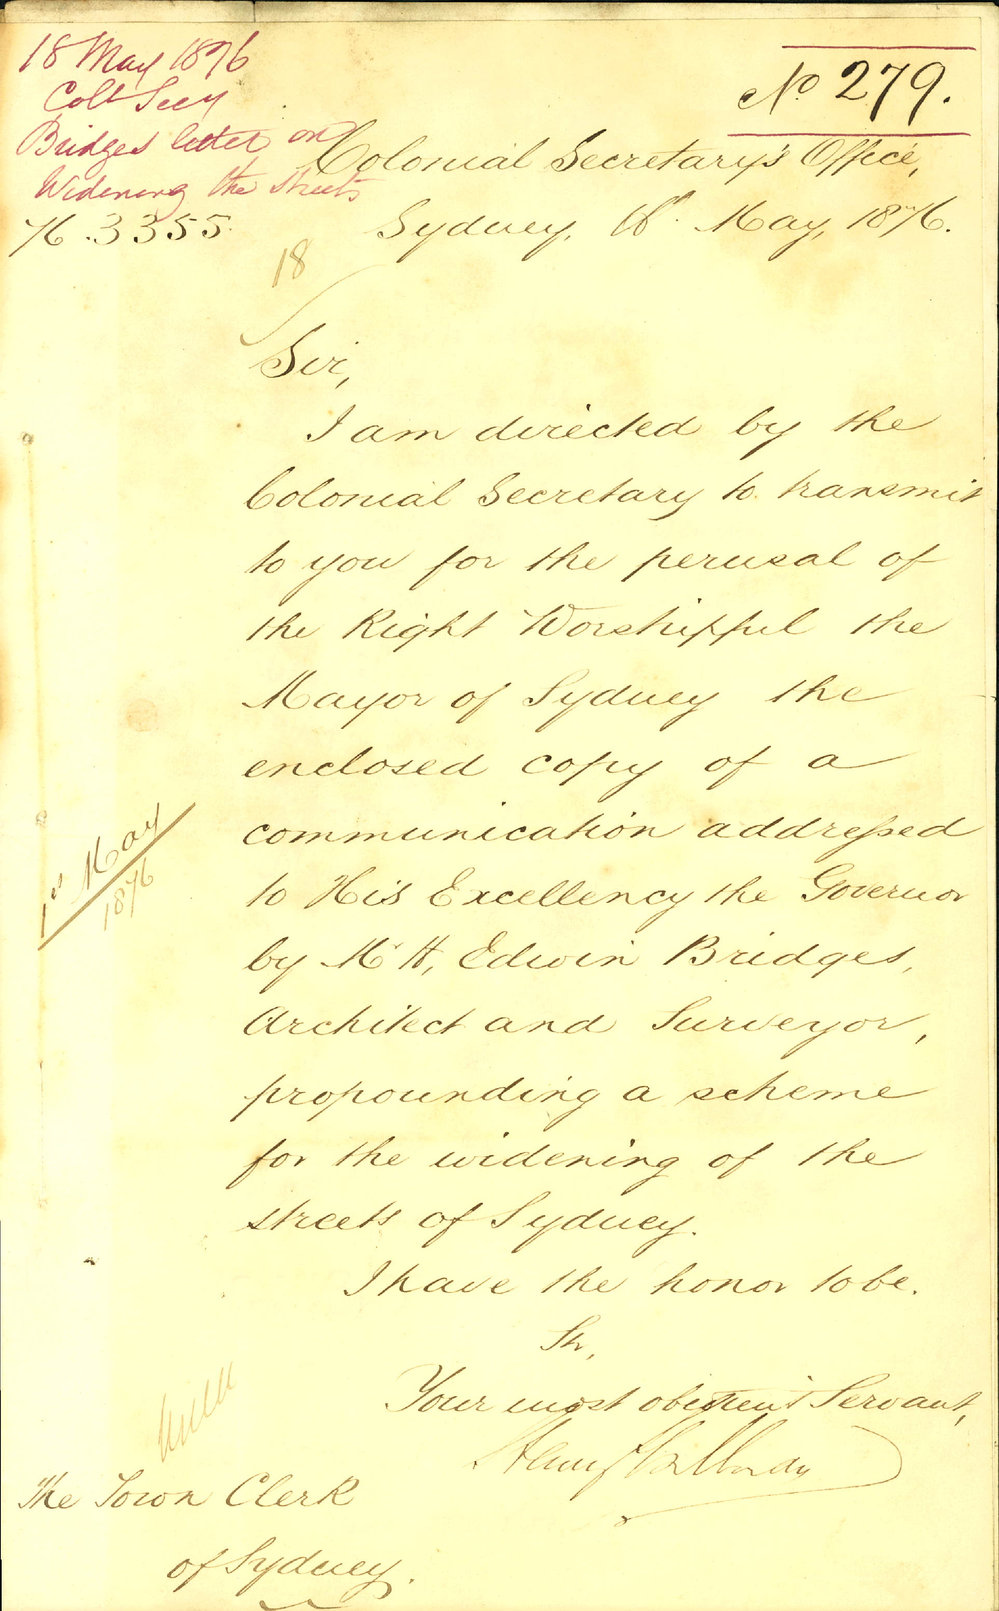 18 May 1876
Coll Secy
Bridges letter on
Widening the Streets
76.3355
No 279.
Colonial Secretary's Office,
Sydney, 18th May, 1876.
18
Sir,
I am directed by the
Colonial Secretary to transmit
to you for the perusal of
the Right Worshipful the
Mayor of Sydney the
enclosed copy of a
communication addressed
to His Excellency the Governor
by Mr H. Edwin Bridges,
Architect and Surveyor,
propounding a scheme
for the widening of the
streets of Sydney.
1st May
1876
I have the honor to be.
Sir,
Your most obedient Servant,
Henry Halloran
The Town Clerk
of Sydney.